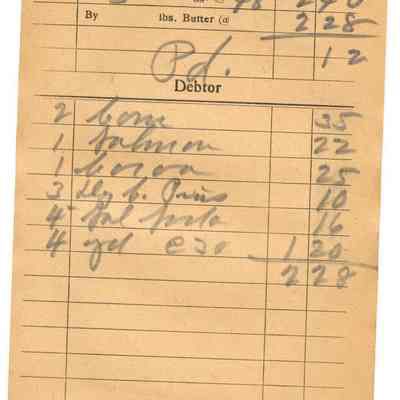 48 2 40
By lbs. Butter (@ 2 28
Pd. 12
Debtor
2 corn 35
1 salmon 22
1 cocoa 25
3 10
4 16
4 yd @ 30 1 20
2 28